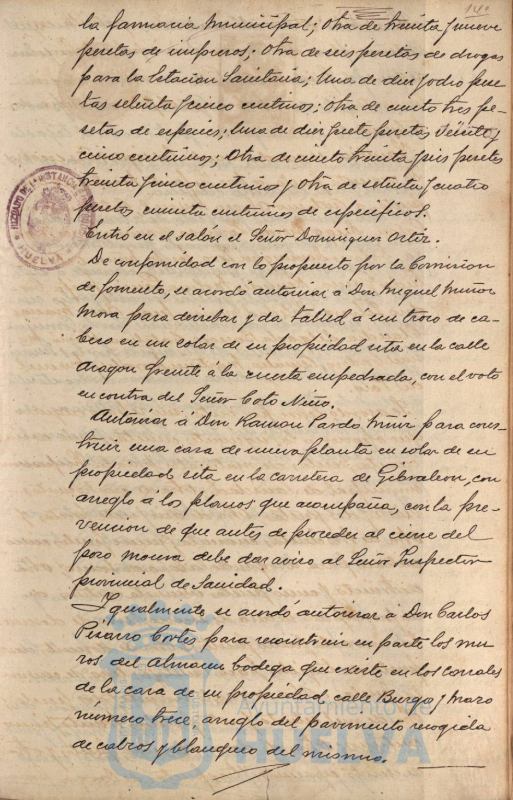 140
la farmacia Municipal; Otra de treinta y nueve
pesetas de impresos; Otra de seis pesetas de drogas
para la Estacion Sanitaria; Una de diez y ocho pese-
tas setenta y cinco centimos; otra de ciento tres pe-
setas de especies; Una de diez y siete pesetas veinte y
cinco centimos; Otra de ciento treinta y seis pesetas
treinta y cinco centimos y otra de setenta y cuatro
pesetas cincuenta centimos de especificos.
Entró en el salón el Señor Dominguez Ortiz.
De conformidad con lo propuesto por la Comision
de fomento, se acordó autorizar á Don Miguel Muñoz
Mora para derribar y da talud á un trozo de ca-
bezo en un solar de su propiedad sita en la calle
Aragon frente á la cuesta empedrada, con el voto
en contra del Señor Coto Niño.
Autorizar á Don Ramon Pardo para cons-
truir una casa de nueva planta en solar de su
propiedad sita en la carretera de Gibraleon, con
arreglo á los planos que acompaña, con la pre-
vencion de que antes de proceder al cierre del
pozo moura debe dar aviso al Señor Inspector
provincial de Sanidad.
Igualmente se acordó autorizar á Don Carlos
Pizarro Cortés para reconstruir en parte los mu-
ros del Almacen bodega que existe en los corrales
de la casa de su propiedad calle Burgos y Mazo
número trece, arreglo del pavimento recogida
de cabros y blanqueo del mismo.
Ayuntamiento de
HUELVA